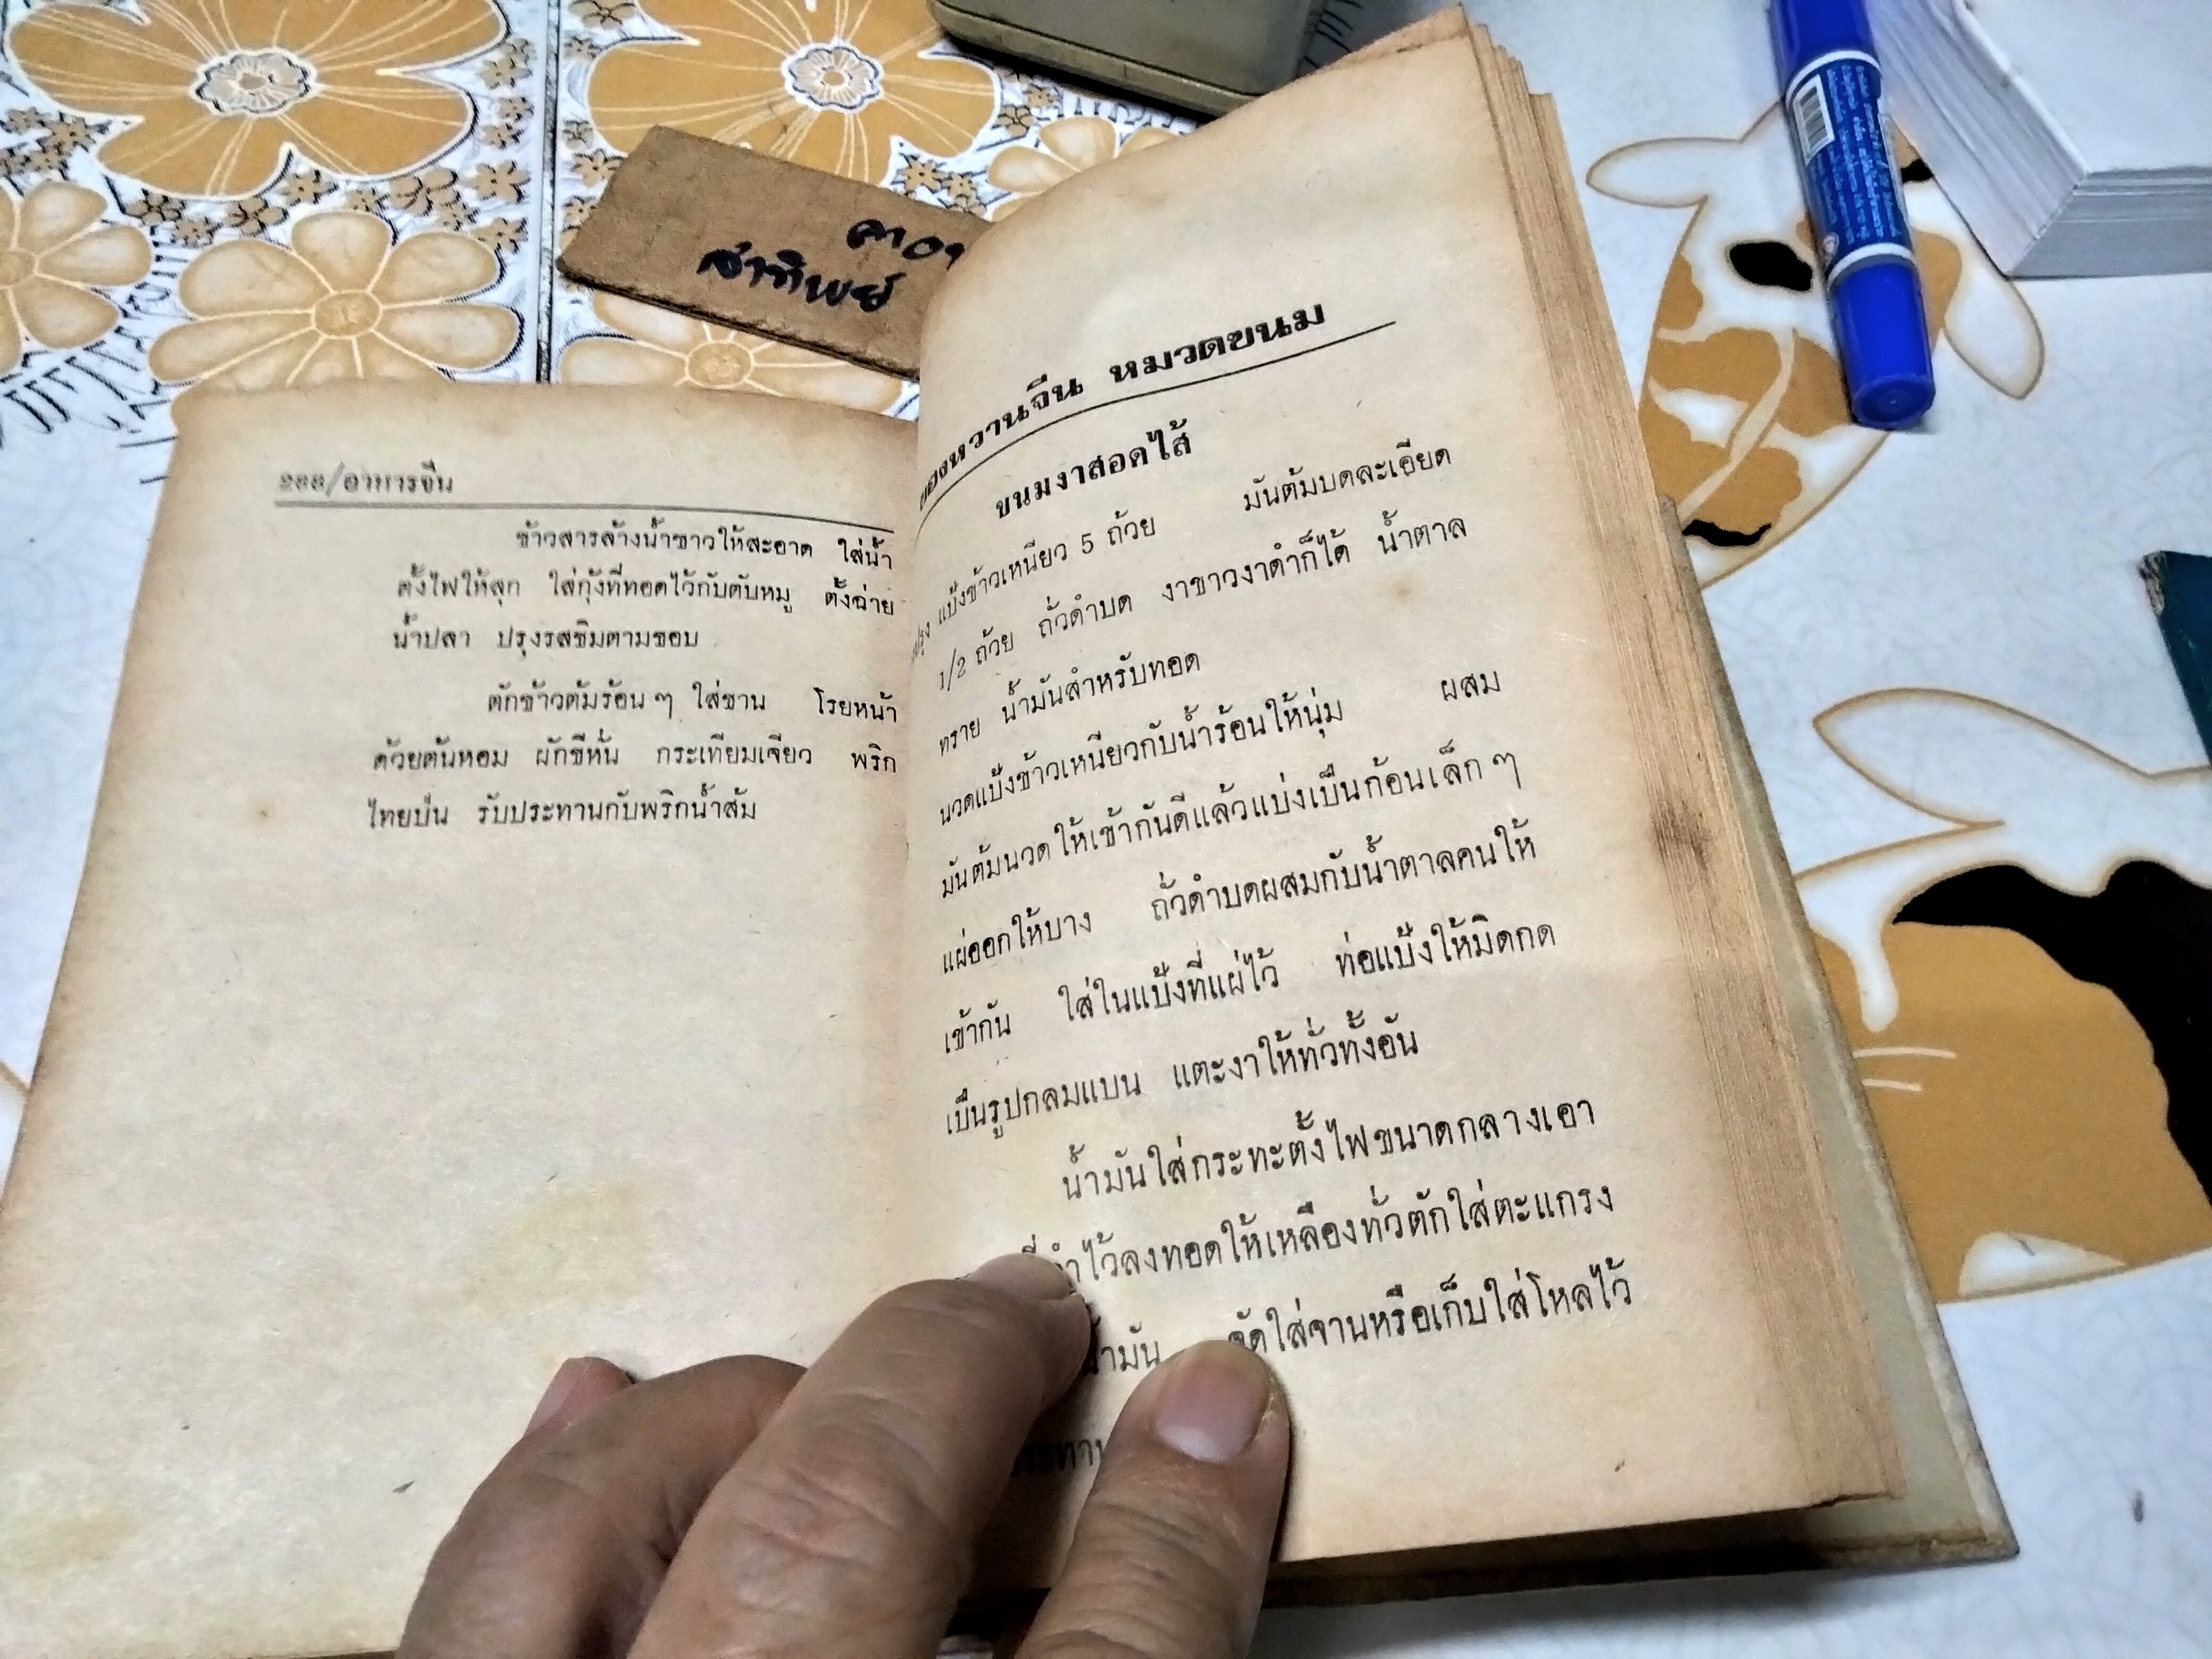 สาทิพย์
/อาหารจีน
ข้าวสารล้างน้ำซาวให้สะอาด ใส่น้ำ
ตั้งไฟให้สุก ใส่กุ้งที่ทอดไว้กับตับหมู ตั้งฉ่าย
น้ำปลา ปรุงรสชิมตามชอบ
ตักข้าวต้มร้อน ๆ ใส่ชาม โรยหน้า
ด้วยต้นหอม ผักชีหั่น กระเทียมเจียว พริก
ไทยป่น รับประทานกับพริกน้ำส้ม
ของหวานจีน หมวดขนม
ขนมงาสอดไส้
แป้งข้าวเหนียว 5 ถ้วย มันต้มบดละเอียด
1/2 ถ้วย ถั่วดำบด งาขาวงาดำก็ได้ น้ำตาล
ทราย น้ำมันสำหรับทอด
นวดแป้งข้าวเหนียวกับน้ำร้อนให้นุ่ม ผสม
มันต้มนวดให้เข้ากันดีแล้วแบ่งเป็นก้อนเล็ก ๆ
แผ่ออกให้บาง ถั่วดำบดผสมกับน้ำตาลคนให้
เข้ากัน ใส่ในแป้งที่แผ่ไว้ ห่อแป้งให้มิดกด
เป็นรูปกลมแบน แตะงาให้ทั่วทั้งอัน
น้ำมันใส่กระทะตั้งไฟขนาดกลางเอา
ที่ทำไว้ลงทอดให้เหลืองทั่วตักใส่ตะแกรง
น้ำมัน จัดใส่จานหรือเก็บใส่โหลไว้